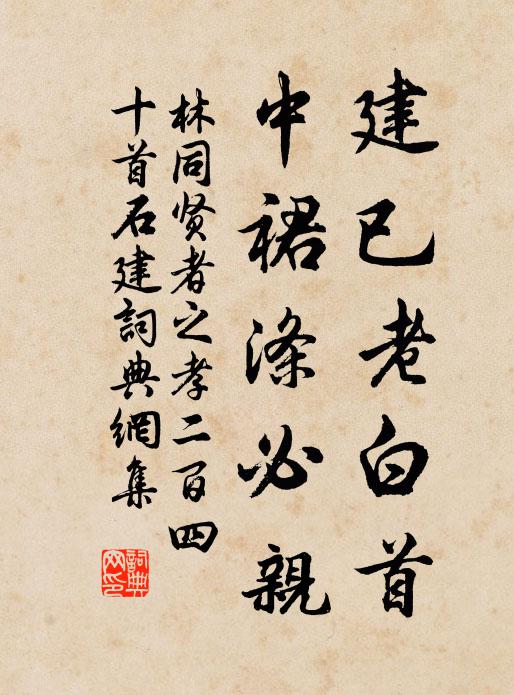 建已老白首
中裙涤必親
林同贤者之孝二百四
十首石建詞典網集
詞典
网印